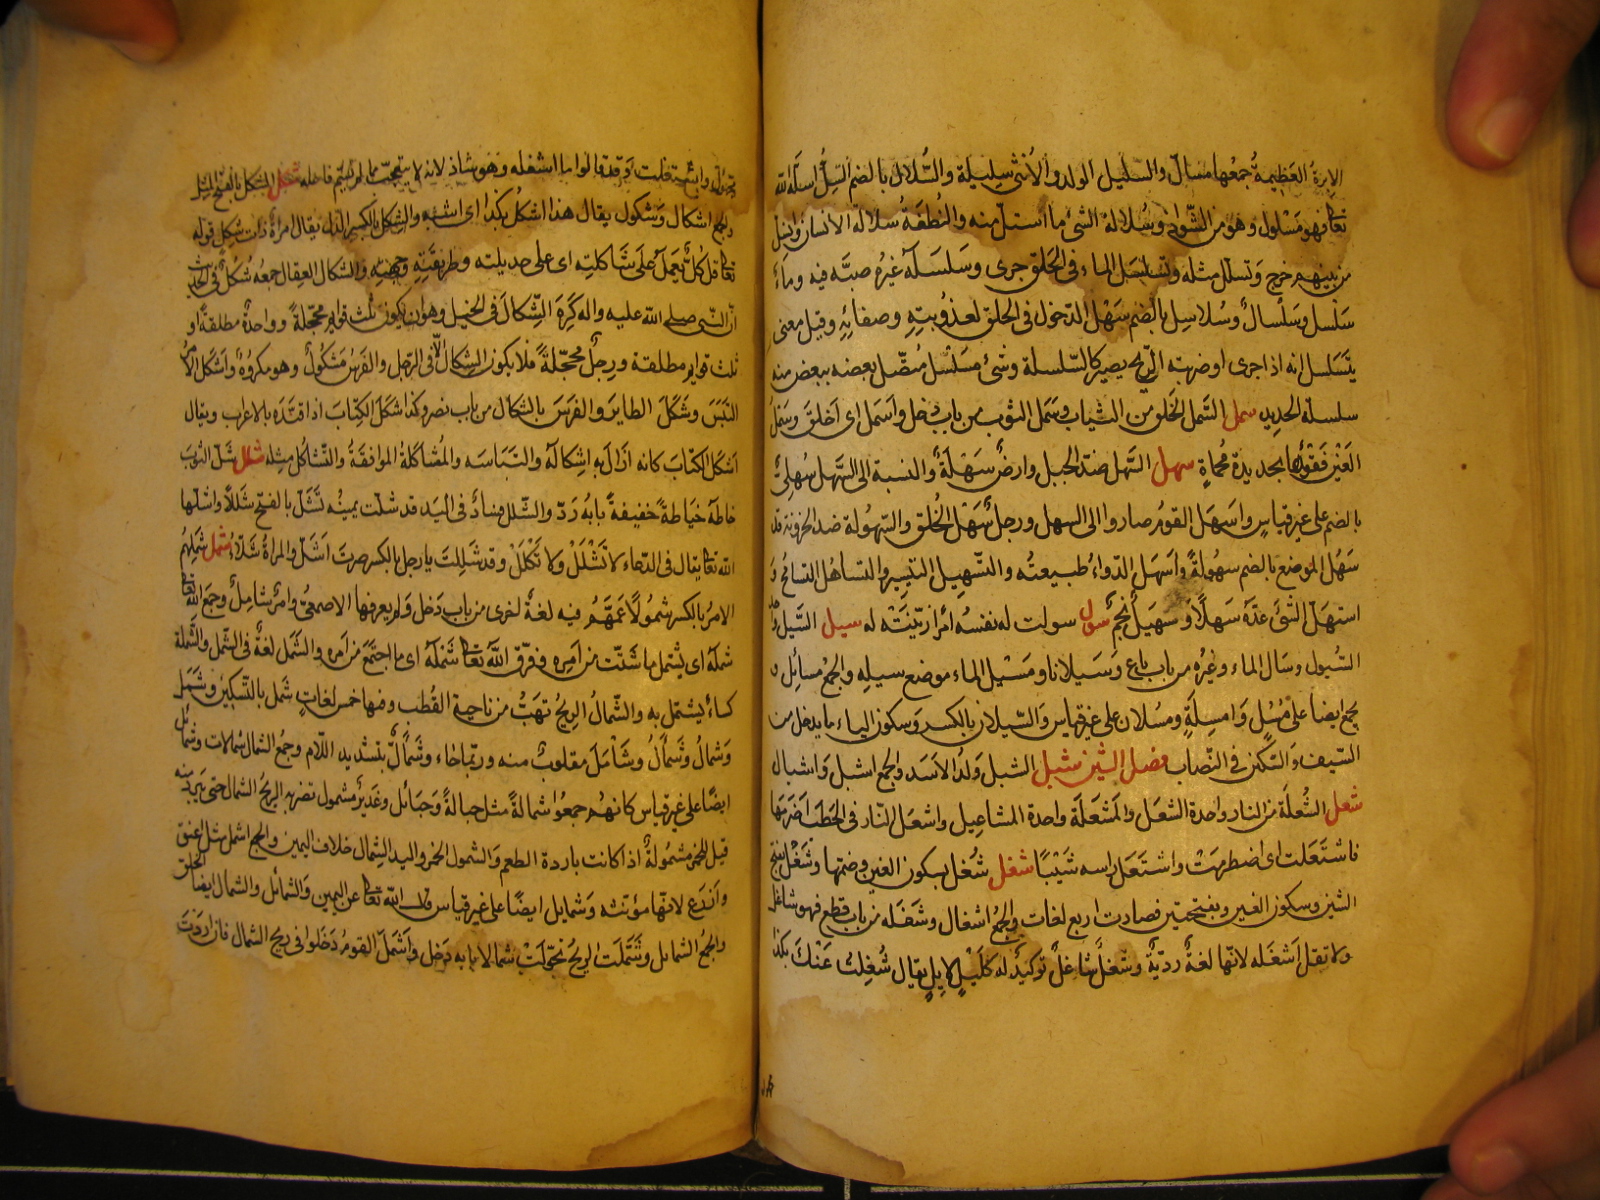 الابرة العظيمة جمعها مسال والسليل الولد والانثى سليلة والسلال بالضم السل اسله الله
تعا فهو مسلول وهو من الشواذ وسلالة الشئ ما استل منه والنطفة سلالة الانسان وانسل
من بينهم خرج وتسلل مثله وتسلسل الماء فى الحلق جرى وسلسله غيره صبه فيه وماء
سلسل وسلسال وسلاسل بالضم سهل الدخول فى الحلق لعذوبته وصفائه وقيل معنى
يتسلسل انه اذا جرى او ضربته الريح يصير كالسلسلة وشئ مسلسل متصل بعضه ببعض منه
سلسلة الحديد سمل السمل الخلق من الثياب وسمل الثوب من باب دخل واسمل اى اخلق وسمل
العين فقؤها بحديدة محماة سهل السهل ضد الجبل وارض سهلة والنسبة الى السهل سهلى
بالضم على غير قياس واسهل القوم صاروا الى السهل ورجل سهل الخلق والسهولة ضد الحزونة قد
سهل الموضع بالضم سهولة واسهل الدواء طبيعته والتسهيل التيسير والتساهل التسامح و
استهل الشئ عده سهلا وسهيل نجم سول سولت له نفسه أمرا زينته له سيل السيل واحد
السيول وسال الماء وغيره من باب باع وسيلانا ومسيل الماء موضع سيله والجمع مسائل و
يجمع ايضا على مسل وامسلة ومسلان على غير قياس والسيلان بالكسر وسكون الياء ما يدخل من
السيف والسكين فى النصاب فصل الشين شبل الشبل ولد الاسد والجمع اشبل واشبال
شعل الشعلة من النار واحدة الشعل والمشعلة واحدة المشاعيل واشعل النار فى الحطب اضرمها
فاشتعلت اى اضطرمت واشتعل راسه شيبا شغل شغل بسكون الغين وضمها وشغل بفتح
الشين وسكون الغين وبفتحتين فصارت اربع لغات والجمع اشغال وشغله من باب قطع فهو شاغل
ولا تقل اشغله لانها لغة ردية وشغل شاغل توكيد له كليل لايل يقال شغلت عنك بكذا
واشتغلت وقد قالوا ما اشغله وهو شاذ لانه لا يتعجب مما لم يسم فاعله شكل الشكل بالفتح المثل
والجمع اشكال وشكول يقال هذا اشكل بكذا اى اشبه والشكل بالكسر الدل يقال امراة ذات شكل قوله
تعا قل كل يعمل على شاكلته اى على جديلته وطريقته وجهته والشكال العقال جمعه شكل فى الحديث
ان النبى صلى الله عليه واله كره الشكال فى الخيل وهو ان يكون ثلث قوايم محجلة وواحدة مطلقة او
ثلث قوايم مطلقة ورجل محجلة فلا يكون الشكال الا فى الرجل والفرس مشكول وهو مكروه واشكل الامر
التبس وشكل الطاير والفرس بالشكال من باب نصر وكذا شكل الكتاب اذا قيده بالاعراب ويقال
اشكل الكتاب كانه ازال به اشكاله والتباسه والمشاكلة الموافقة والتشاكل مثله شلل شل الثوب
خاطه خياطة خفيفة بابه رد والشلل فساد فى اليد قد شلت يمينه تشل بالفتح شللا واشلها
الله تعا يقال فى الدعاء لا تشلل ولا تكلل وقد شللت يا رجل بالكسر صرت اشل والمراة شلاء شمل شملهم
الامر بالكسر شمولا عمهم فيه لغة اخرى من باب دخل ولم يعرفها الاصمعى وامر شامل وجمع الله تعا
شمله اى يشتمل ما شتت من امره وفرق الله تعا شمله اى ما اجتمع من امره والشمل لغة فى الشمل والشملة
كساء يشتمل به والشمال الريح تهب من ناحية القطب وفيها خمس لغات شمل بالتسكين وشمل
وشمال وشمأل وشأمل مقلوب منه وربما جاء وشمأل بتشديد اللام وجمع الشمال شمالات وشمائل
ايضا على غير قياس كانهم جمعوا شمالة مثل حبالة وحبائل وغدير مشمول تضربه الريح الشمال حتى يبرد منه
قيل للخمر مشمولة اذا كانت باردة الطعم والشمول الخمر واليد الشمال خلاف اليمين والجمع اشمل مثل اعنق
واذرع لانها مؤنثه وشمايل ايضا على غير قياس قال الله تعا عن اليمين والشمائل والشمال ايضا الخلق
والجمع الشمائل وشملت الريح تحولت شمالا بابه دخل واشمل القوم دخلوا فى ريح الشمال فان اردت